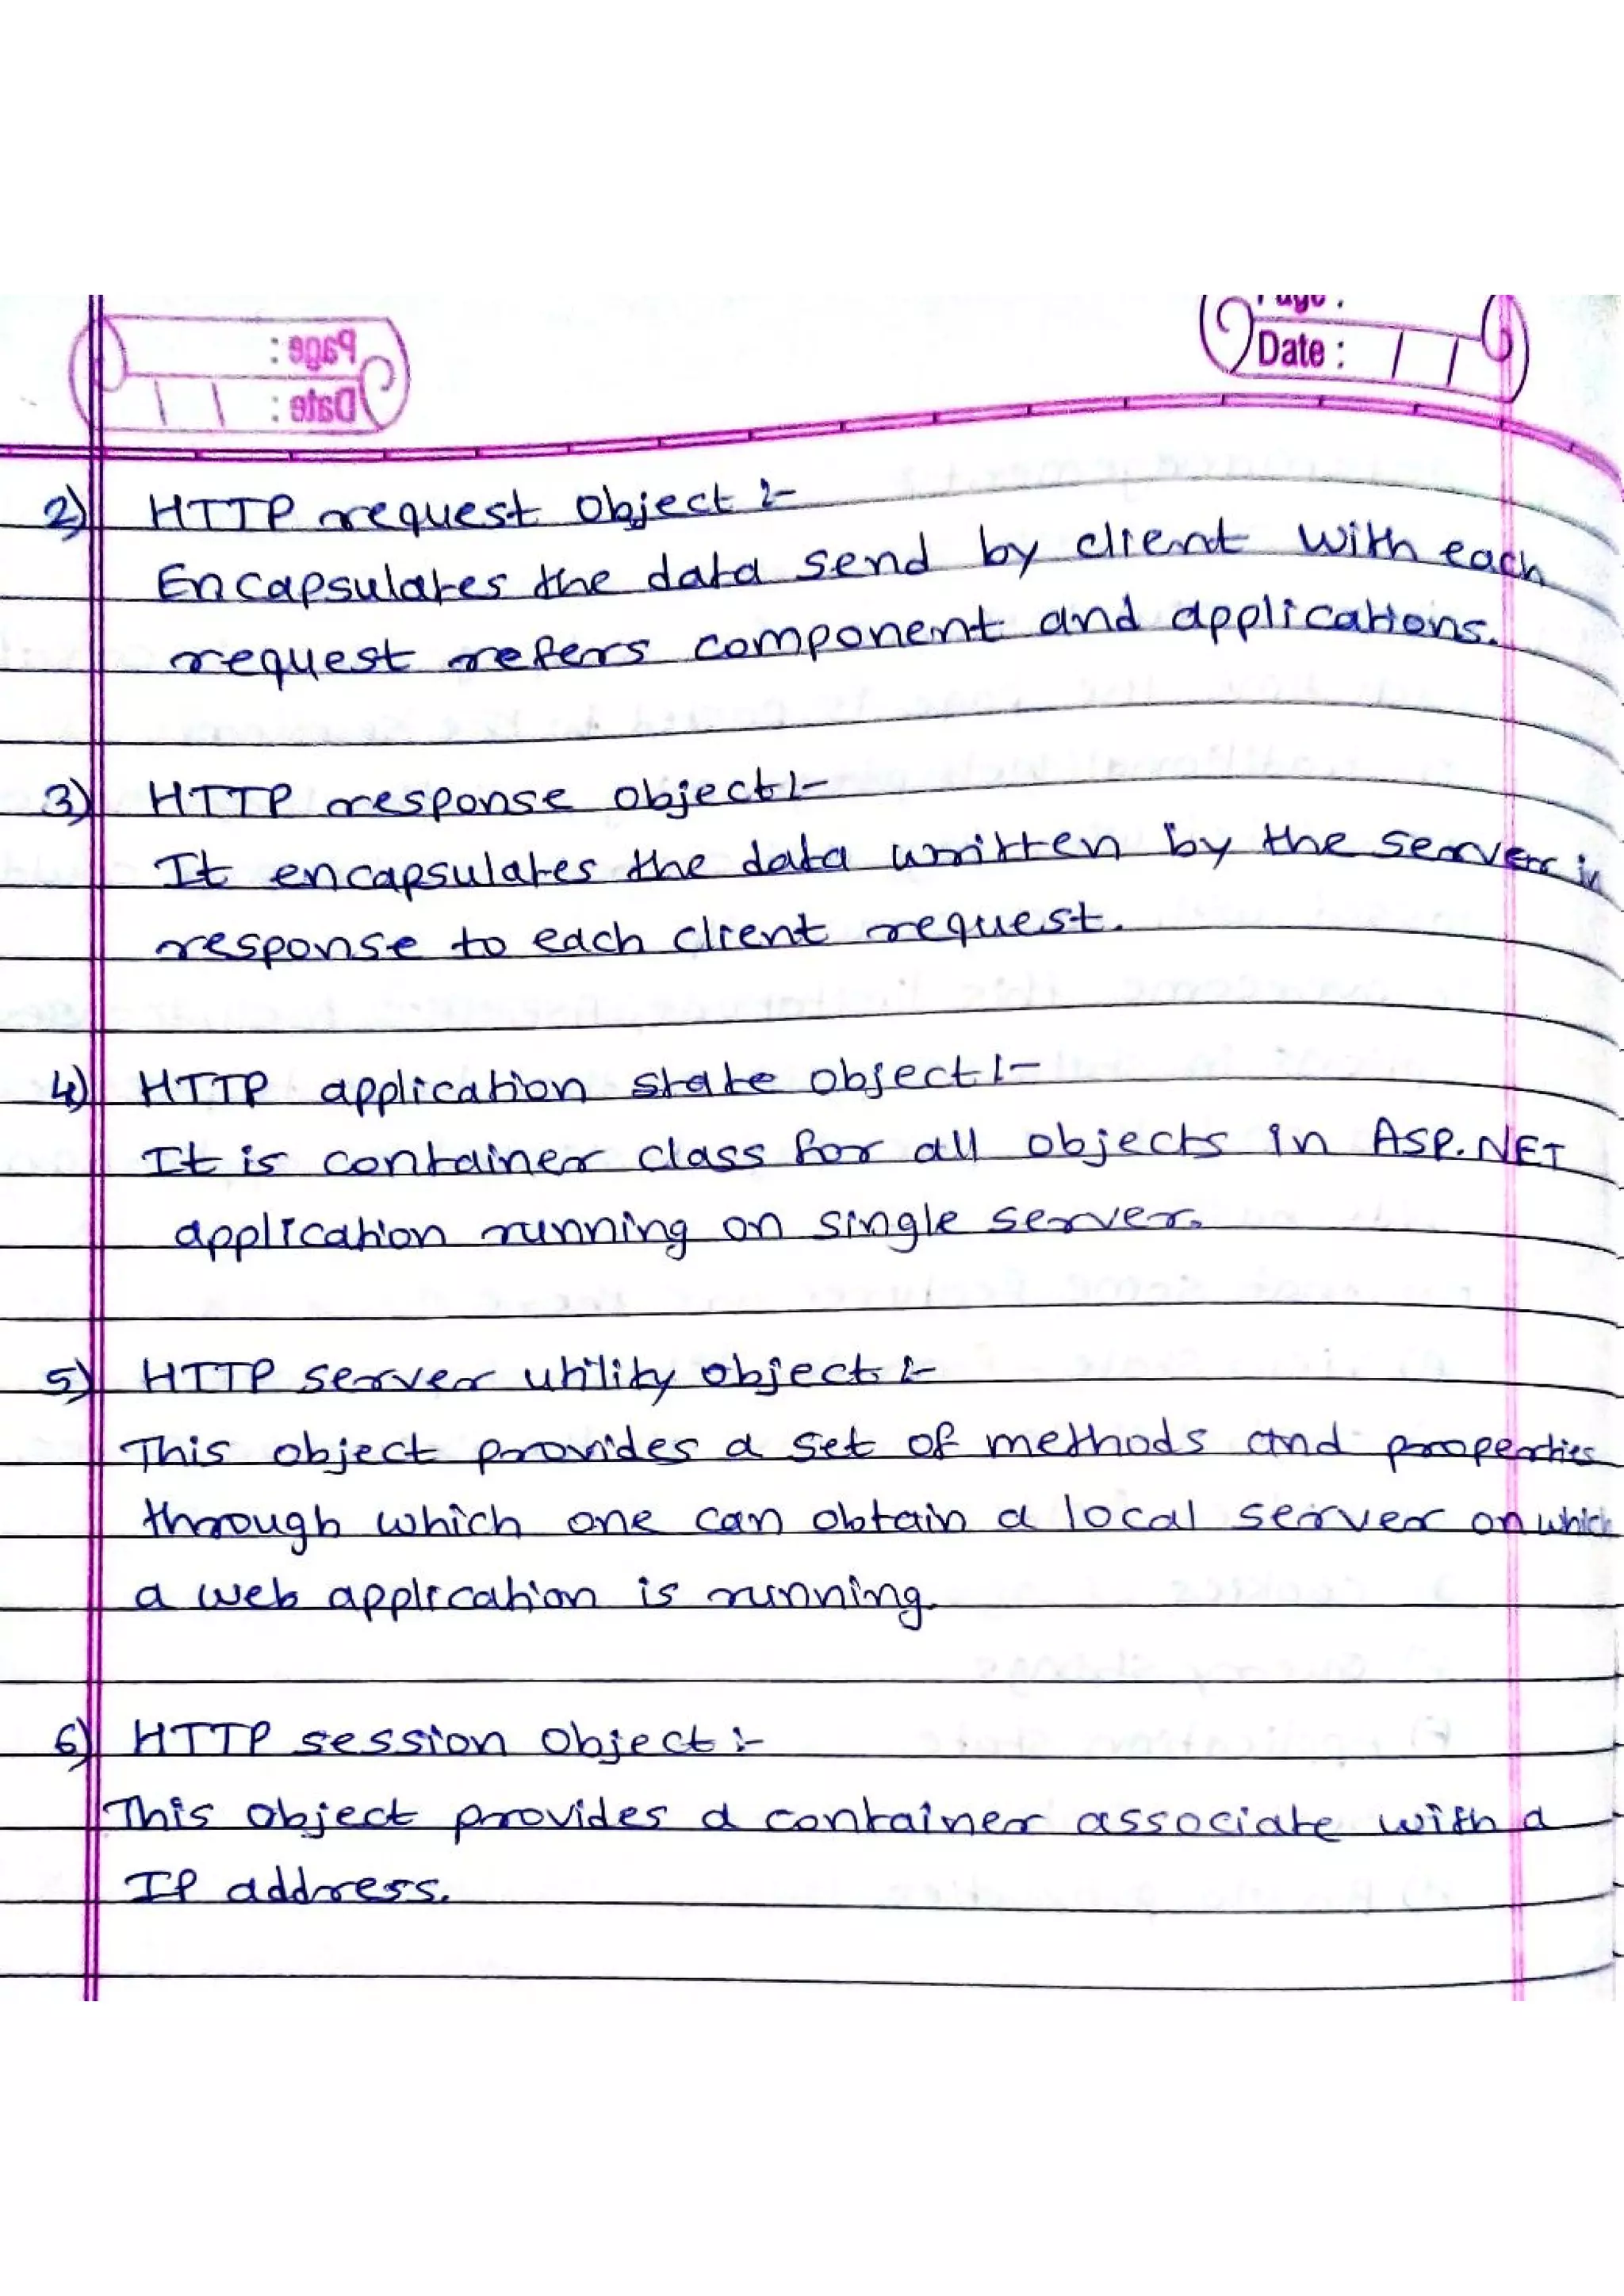 Page :
Date :
Page :
Date :
2) HTTP request object :-
Encapsulates the data send by client with each
request refers component and applications.
3) HTTP response object :-
It encapsulates the data written by the server in
response to each client request.
4) HTTP application state object :-
It is container class for all objects in ASP.NET
application running on single server.
5) HTTP server utility object :-
This object provides a set of methods and properties
through which one can obtain a local server on which
a web application is running.
6) HTTP session object :-
This object provides a container associate with a
IP address.